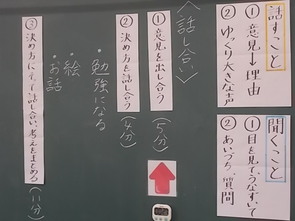 話すこと
①意見→理由
②ゆっくり大きな声
聞くこと
①目を見てうなずいて
②あいづち、質問
〈話し合い〉
①意見を出し合う
(5分)
②決め方を話し合う
(4分)
・勉強になる
・絵
・お話
③決め方にそって話し合い、考えをまとめる
(11分)